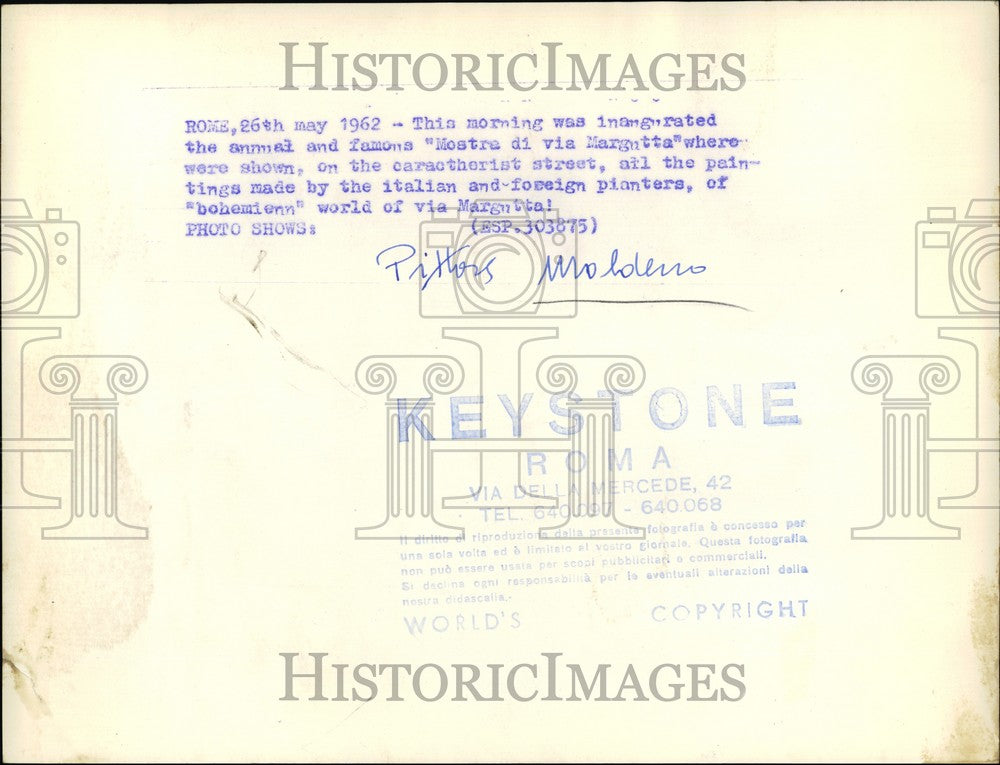 HISTORICIMAGES
ROME,26th may 1962 - This morning was inangurated
the annual and famous "Mostra di via Margutta"where
were shown, on the caractherist street, all the pain-
tings made by the italian and foreign pianters, of
"bohemienn" world of via Margutta!
PHOTO SHOWS: (ESP.303875)
KEYSTONE
ROMA
VIA DELLA MERCEDE, 42
TEL. 640.097 - 640.068
Il diritto di riproduzione della presente fotografia è concesso per
una sola volta ed è limitato al vostro giornale. Questa fotografia
non può essere usata per scopi pubblicitari o commerciali.
Si declina ogni responsabilità per le eventuali alterazioni della
nostra didascalia.
WORLD'S COPYRIGHT
HISTORICIMAGES